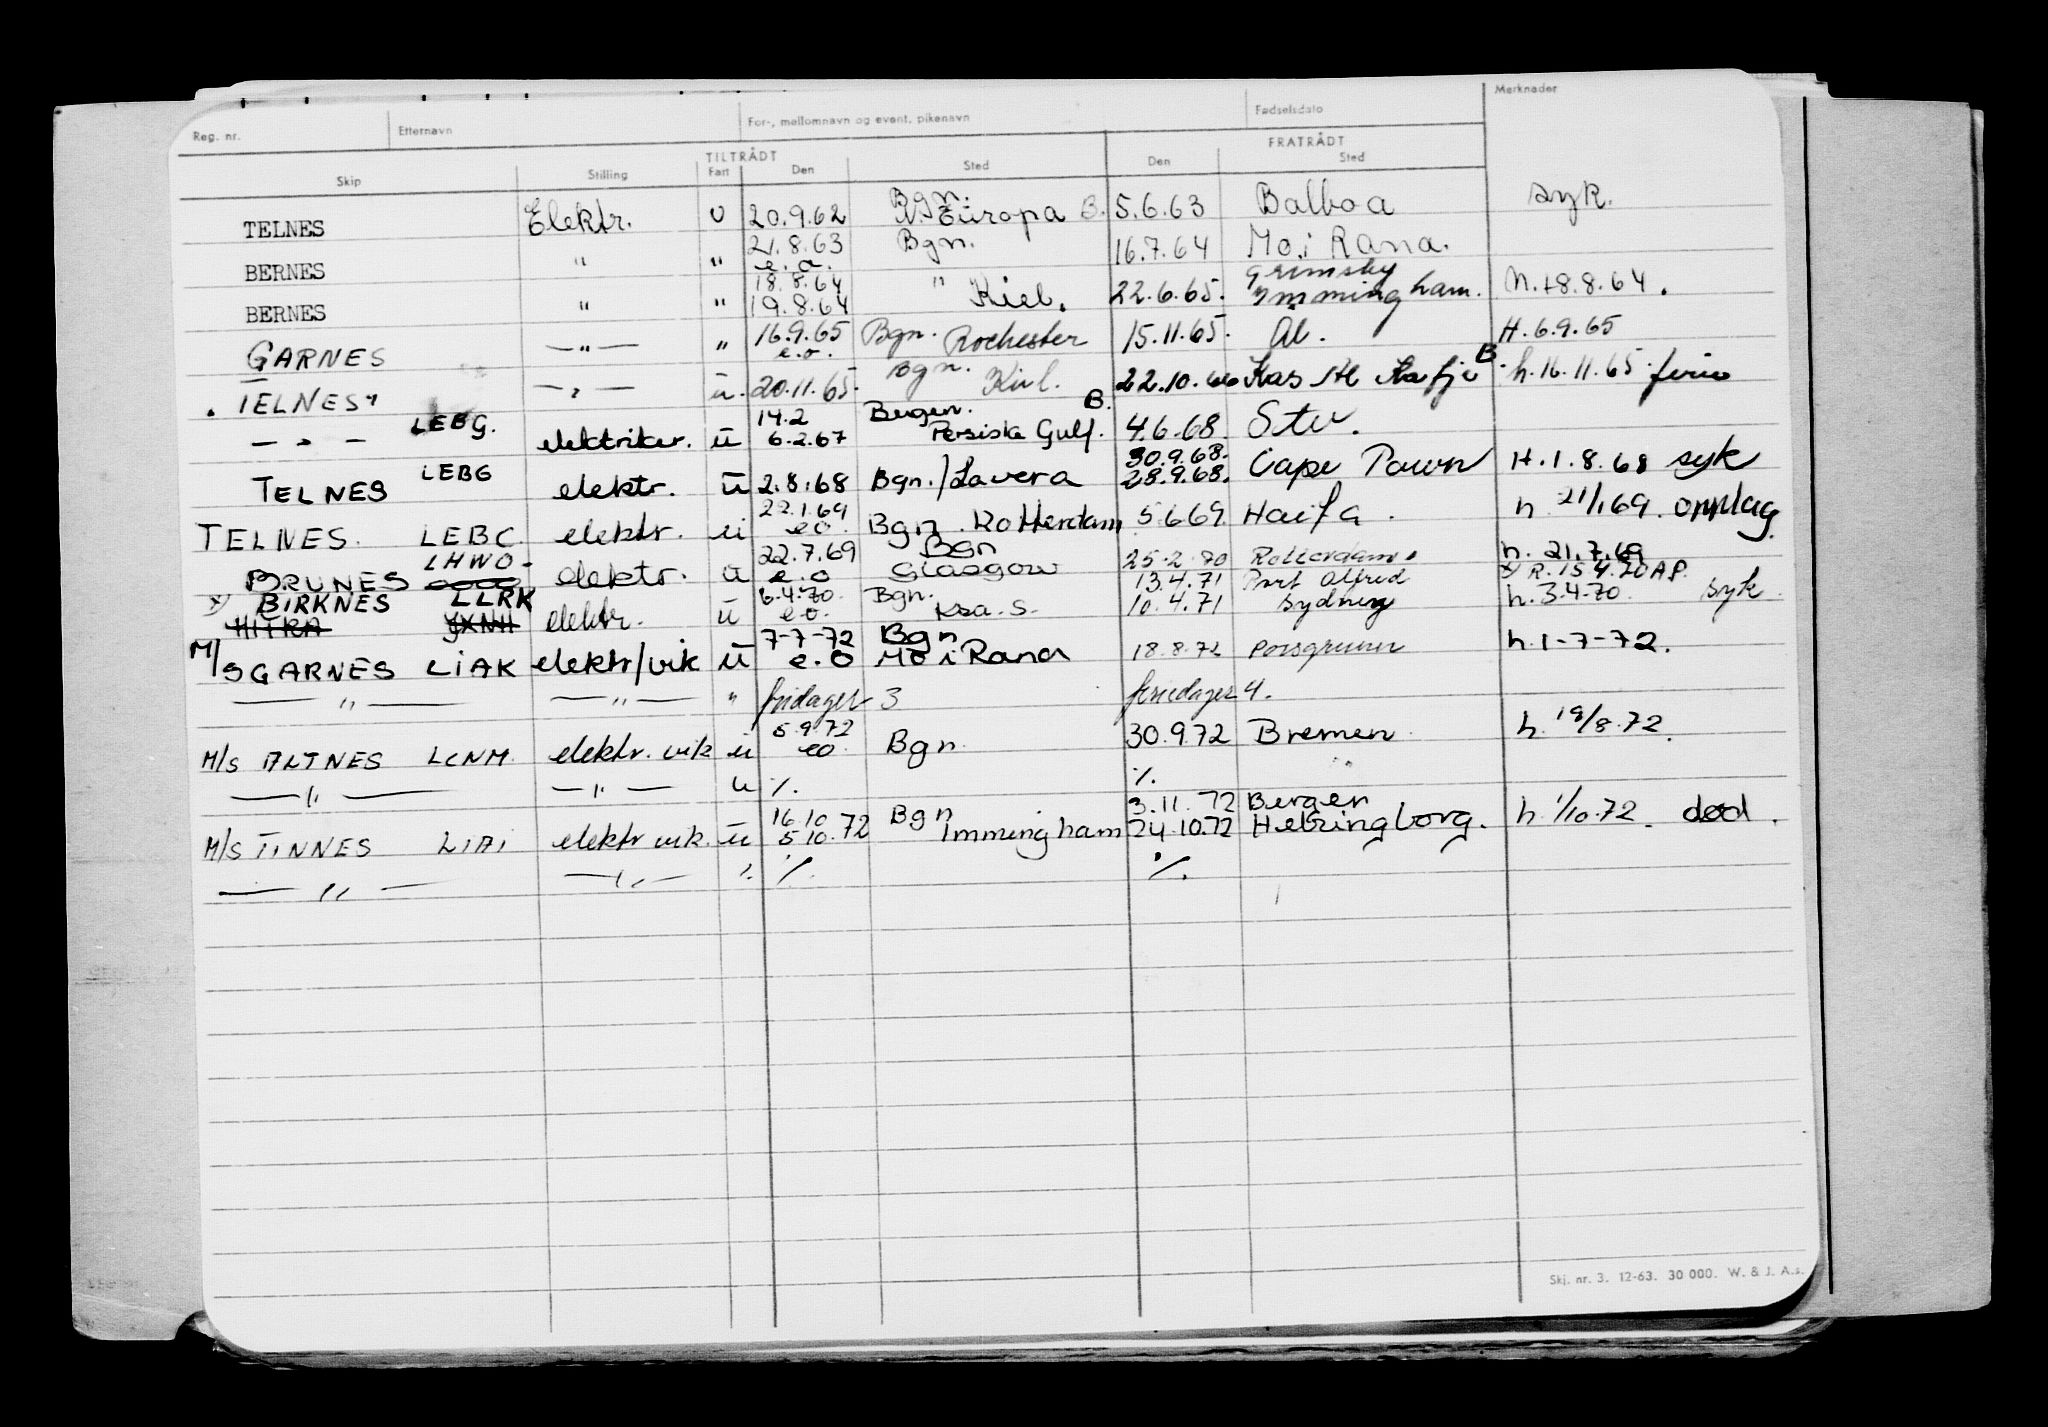 Reg. nr. Etternavn For-, mellomnavn og event. pikenavn Fødselsdato Merknader
TILTRÅDT FRATRÅDT
Skip Stilling Fart Den Sted Den Sted
Bgn.
TELNES Elektr. U 20.9.62 N. Europa B. 5.6.63 Balboa syk.
21.8.63 Bgn.
BERNES " " e.o. 16.7.64 Mo i Rana.
18.8.64 " Grimsby
BERNES " " 19.8.64 Kiel. 22.6.65. Immingham. N. 18.8.64.
16.9.65
GARNES — " — " e.o. Bgn. Rochester 15.11.65. Ål. H. 6.9.65
Bgn. B.
TELNES — " — u. 20.11.65. Kiel. 22.10.66 h. 16.11.65 ferie
14.2 Bergen. B.
— " — LEBG. elektriker. u 6.2.67 Persiske Gulf. 4.6.68. Stv.
30.9.68.
TELNES LEBG elektr. u 2.8.68 Bgn./Lavera 28.9.68. Cape Town H. 1.8.68 syk
22.1.69
TELNES. LEBC. elektr. u eo. Bgn. Rotterdam 5.6.69. Haifa. h. 21/1.69. opplag.
LHWO. 22.7.69 Bgn
BRUNES elektr. u e.o Glasgow 25.2.70 Rotterdam. h. 21.7.69
x) BIRKNES LLRK 6.4.70. Bgn. 13.4.71 Port Alfred x) R. 15.4.70 AP.
HITRA elektr. u e.o. Kra. S. 10.4.71 Sydney h. 3.4.70. syk.
7-7-72 Bgn
M/S GARNES LIAK elektr/vik u e.o Mo i Rana 18.8.72 Porsgrunn h. 1-7-72.
— " — — " — " fridager 3 feriedager 4.
5.9.72
M/S ALTNES LCNM. elektr. vik u eo. Bgn. 30.9.72 Bremen. h. 19/8.72.
— " — — " — u %. %.
16.10 Bgn 3.11.72 Bergen
M/S TINNES LIAI elektr vik. u 5.10.72 Immingham 24.10.72 Helsingborg. h. 1/10.72. død.
— " — — " — " %. %.
Skj. nr. 3. 12-63. 30 000. W. & J. A.s.